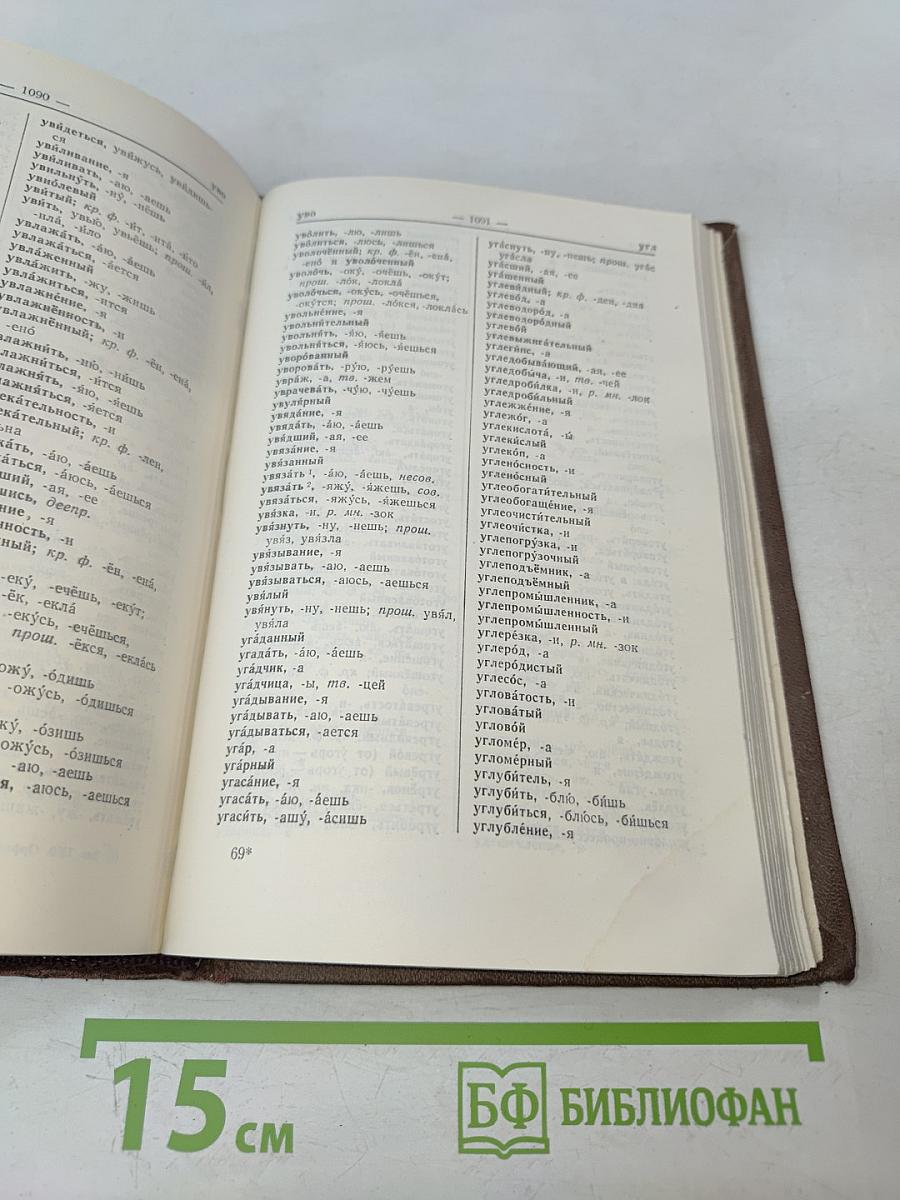 — 1090 —
уви́деться, уви́жусь, уви́дишь-
ся
уви́ливание, -я
уви́ливать, -аю, -аешь
увильну́ть, -ну́, -нёшь
увио́левый
уви́тый; кр. ф. -и́т, -ита́, -и́то
уви́ть, увью́, увьёшь; прош. -и́л,
-ила́, -и́ло
увлажа́ть, -а́ю, -а́ешь
увлажа́ться, -а́ется
увла́женный
увла́жить, -жу, -жишь
увла́житься, -ится
увлажне́ние, -я
увлажнённость, -и
увлажнённый; кр. ф. -ён, -ена́,
-ено́
влажни́ть, -ню́, -ни́шь
влажни́ться, -и́тся
влажня́ть, -я́ю, -я́ешь
влажня́ться, -я́ется
лека́тельность, -и
лека́тельный; кр. ф. -лен,
-льна
ка́ть, -а́ю, -а́ешь
ка́ться, -а́юсь, -а́ешься
ший, -ая, -ее
шись, деепр.
ние, -я
нность, -и
нный; кр. ф. -ён, -ена́,
-еку́, -ечёшь, -еку́т;
-ёк, -екла́
-еку́сь, -ечёшься,
прош. -ёкся, -екла́сь
ожу́, -о́дишь
-ожу́сь, -о́дишься
ку́, -о́зишь
ожу́сь, -о́зишься
-аю, -аешь
я, -аюсь, -аешься
уво
уво
— 1091 —
угл
уво́лить, -лю, -лишь
уво́литься, -люсь, -лишься
уволочённый; кр. ф. -ён, -ена́,
-ено́ и уволо́ченный
уволо́чь, -оку́, -очёшь, -оку́т;
прош. -ло́к, -локла́
уволо́чься, -оку́сь, -очёшься,
-оку́тся; прош. -ло́кся, -локла́сь
увольне́ние, -я
увольни́тельный
увольня́ть, -я́ю, -я́ешь
увольня́ться, -я́юсь, -я́ешься
уворо́ванный
уворова́ть, -ру́ю, -ру́ешь
увра́ж, -а, тв. -жем
уврачева́ть, -чу́ю, -чу́ешь
увуля́рный
увяда́ние, -я
увяда́ть, -а́ю, -а́ешь
увя́дший, -ая, -ее
увяза́ние, -я
увя́занный
увяза́ть¹, -а́ю, -а́ешь, несов.
увяза́ть², -яжу́, -я́жешь, сов.
увяза́ться, -яжу́сь, -я́жешься
увя́зка, -и, р. мн. -зок
увя́знуть, -ну, -нешь; прош.
увя́з, увя́зла
увя́зывание, -я
увя́зывать, -аю, -аешь
увя́зываться, -аюсь, -аешься
увя́лый
увя́нуть, -ну, -нешь; прош. увя́л,
увя́ла
уга́данный
угада́ть, -а́ю, -а́ешь
уга́дчик, -а
уга́дчица, -ы, тв. -цей
уга́дывание, -я
уга́дывать, -аю, -аешь
уга́дываться, -ается
уга́р, -а
уга́рный
угаса́ние, -я
угаса́ть, -а́ю, -а́ешь
угаси́ть, -ашу́, -а́сишь
69*
уга́снуть, -ну, -нешь; прош. уга́с
уга́сла
уга́сший, -ая, -ее
уга́шенный
углеви́дный; кр. ф. -ден, -дна
углево́д, -а
углеводоро́д, -а
углеводоро́дный
углево́й
углевыжига́тельный
углеги́пс, -а
угледобыва́ющий, -ая, -ее
угледобы́ча, -и, тв. -чей
угледроби́лка, -и, р. мн. -лок
угледроби́льный
углежже́ние, -я
углежо́г, -а
углекислота́, -ы́
углеки́слый
углеко́п, -а
углено́сность, -и
углено́сный
углеобогати́тельный
углеобогаще́ние, -я
углеочисти́тельный
углеочи́стка, -и
углепогру́зка, -и
углепогру́зочный
углеподъёмник, -а
углеподъёмный
углепромы́шленник, -а
углепромы́шленность, -и
углепромы́шленный
углере́зка, -и, р. мн. -зок
углеро́д, -а
углеро́дистый
углесо́с, -а
углова́тость, -и
углова́тый
углово́й
угломе́р, -а
угломе́рный
углуби́тель, -я
углуби́ть, -блю́, -би́шь
углуби́ться, -блю́сь, -би́шься
углубле́ние, -я
15 см
БФ БИБЛИОФАН